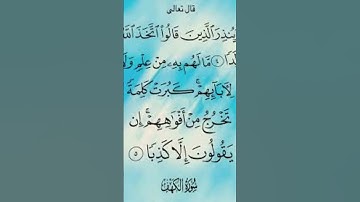 قال تعالى
يُنذِرَ ٱلَّذِينَ قَالُوا۟ ٱتَّخَذَ ٱللَّهُ
دًا ٤ مَّا لَهُم بِهِۦ مِنْ عِلْمٍ وَلَا
لِءَابَآئِهِمْ ۚ كَبُرَتْ كَلِمَةً
تَخْرُجُ مِنْ أَفْوَٰهِهِمْ ۚ إِن
يَقُولُونَ إِلَّا كَذِبًا ٥
سُورَةُ الكَهْفِ